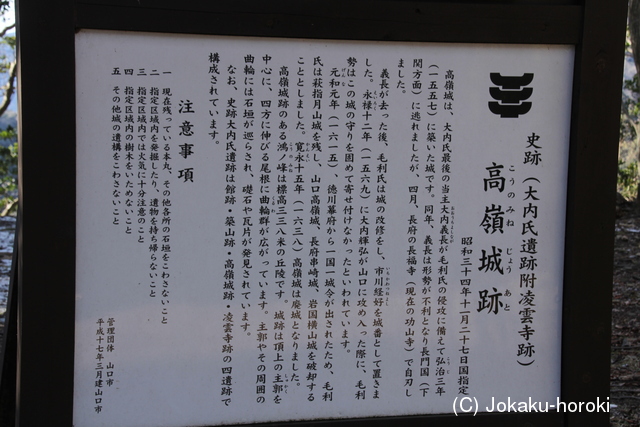 史跡（大内氏遺跡附凌雲寺跡）
高嶺城跡
こうのみね じょう あと
昭和三十四年十一月二十七日国指定
高嶺城は、大内氏最後の当主大内義長が毛利氏の侵攻に備えて弘治三年
（一五五七）に築いた城です。同年、義長は形勢が不利となり長門国（下
関方面）に逃れましたが、四月、長府の長福寺（現在の功山寺）で自刃し
ました。
義長が去った後、毛利氏は城の改修をし、市川経好を城番として置きま
した。永禄十二年（一五六九）に大内輝弘が山口に攻め入った際に、毛利
勢はこの城の守りを固めて寄せ付けなかったといわれています。
元和元年（一六一五）、徳川幕府から一国一城令が出されたため、毛利
氏は萩指月山城を残し、山口高嶺城、長府串崎城、岩国横山城を破却する
こととしました。寛永十五年（一六三八）高嶺城は廃城となりました。
高嶺城跡のある鴻ノ峰は標高三三八米の丘陵です。城跡は頂上の主郭を
中心に、四方に伸びる尾根に曲輪群が広がっています。主郭やその周囲の
曲輪には石垣が巡らされ、礎石や瓦片が発見されています。
なお、史跡大内氏遺跡は館跡・築山跡・高嶺城跡・凌雲寺跡の四遺跡で
構成されています。
注意事項
一 現在残っている本丸、その他各所の石垣をこわさないこと
二 指定区域内を発掘したり、遺物を持ち帰らないこと
三 指定区域内では火気に十分注意のこと
四 指定区域内の樹木をいためないこと
五 その他城の遺構をこわさないこと
管理団体 山口市
平成十七年三月建山口市
(C) Jokaku-horoki